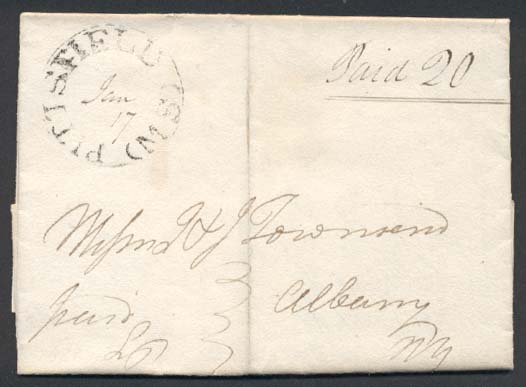 PITTSFIELD (MS)
Jan
17
Paid 20
Messrs I & J Townsend
Albany
NY
paid